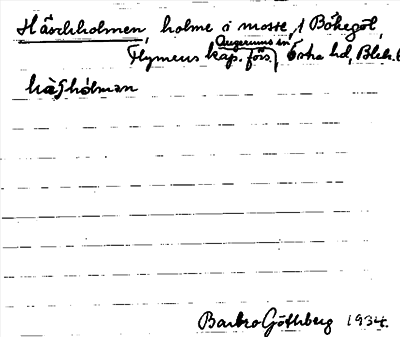 Häschholmen, holme i mosse, 1 Bökegöl,
Augerums sn,
Flymens kap. förs., Östra hd, Blek.l
hàʃhólman
Barbro Göthberg 1934.